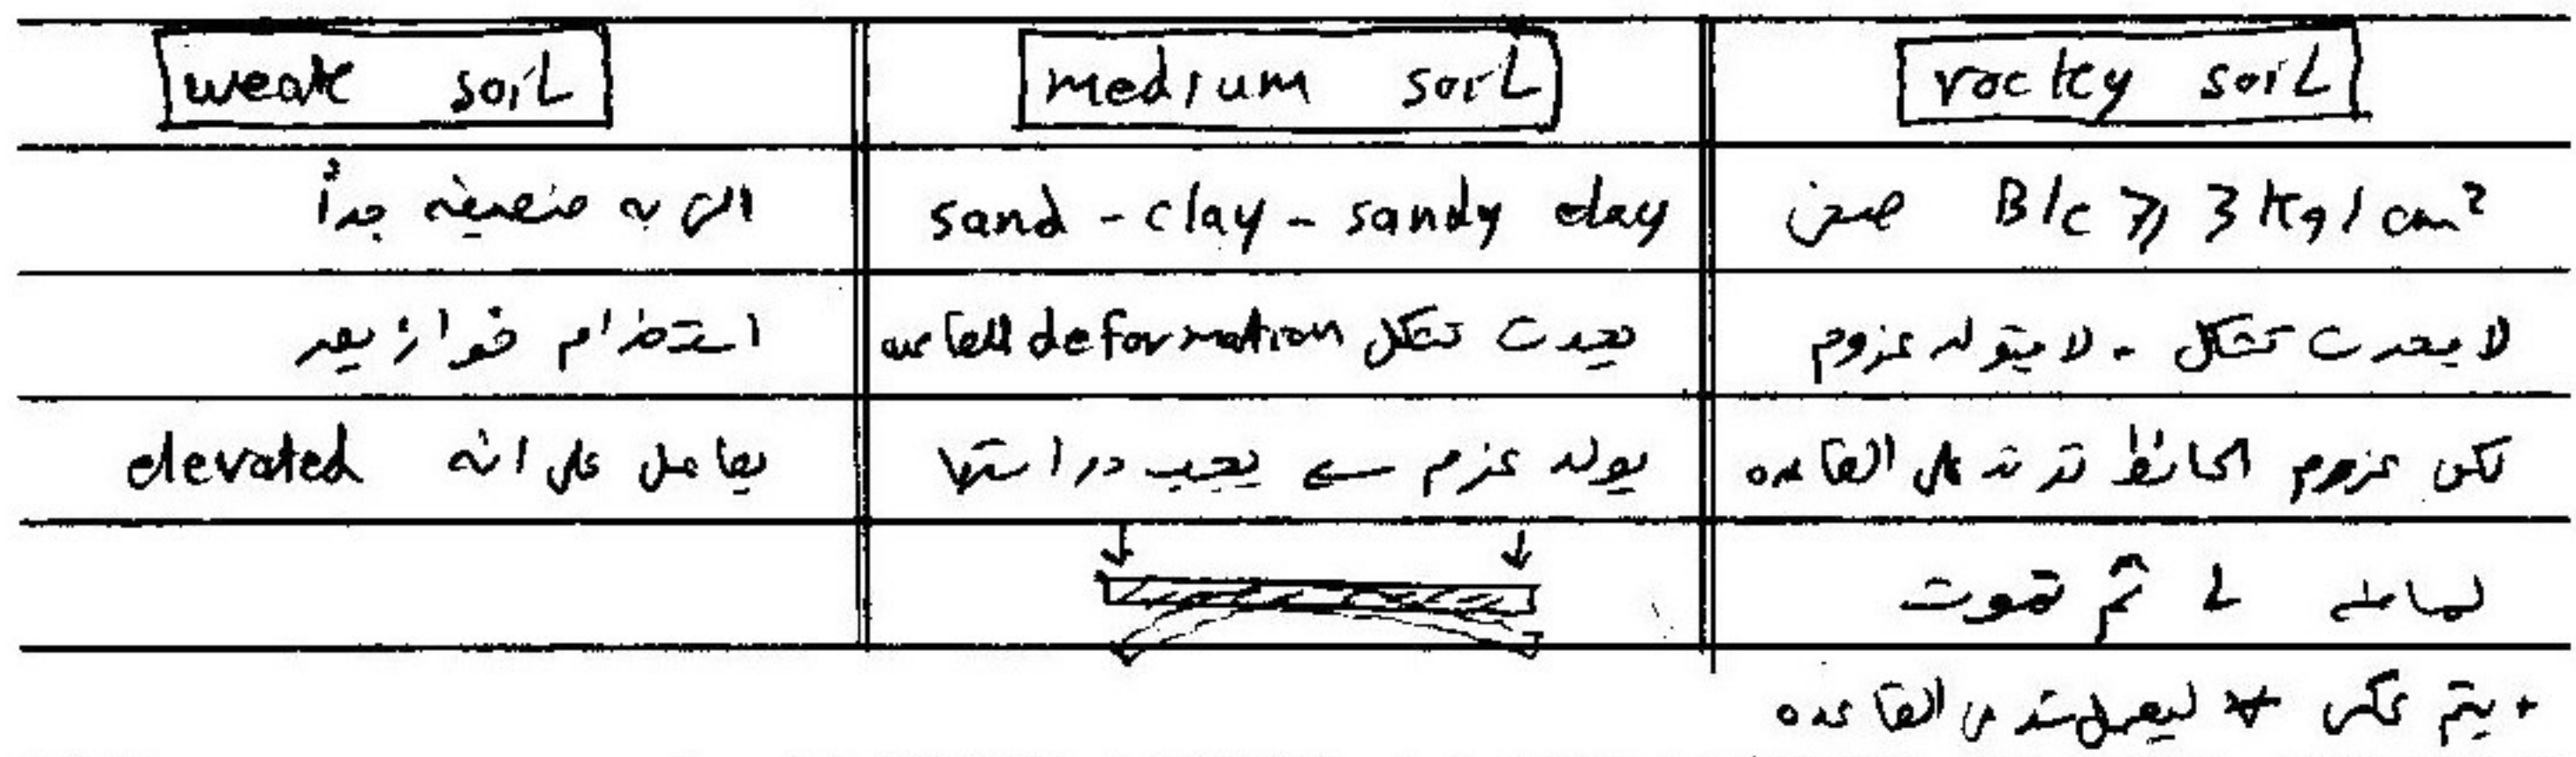 weak soil medium soil rocky soil
التربه ضعيفه جداً sand - clay - sandy clay B/c ≥ 3 kg/cm²
استخدام خوازيق يحدث تشكل deformation للقاعده لا يحدث تشكل - لا يتولد عزوم
يعامل على انه elevated يولد عزم يجب دراستها لكن عزوم الحائط ترتد على القاعده
لمسافه L ثم تموت
يتم عكس القاعده